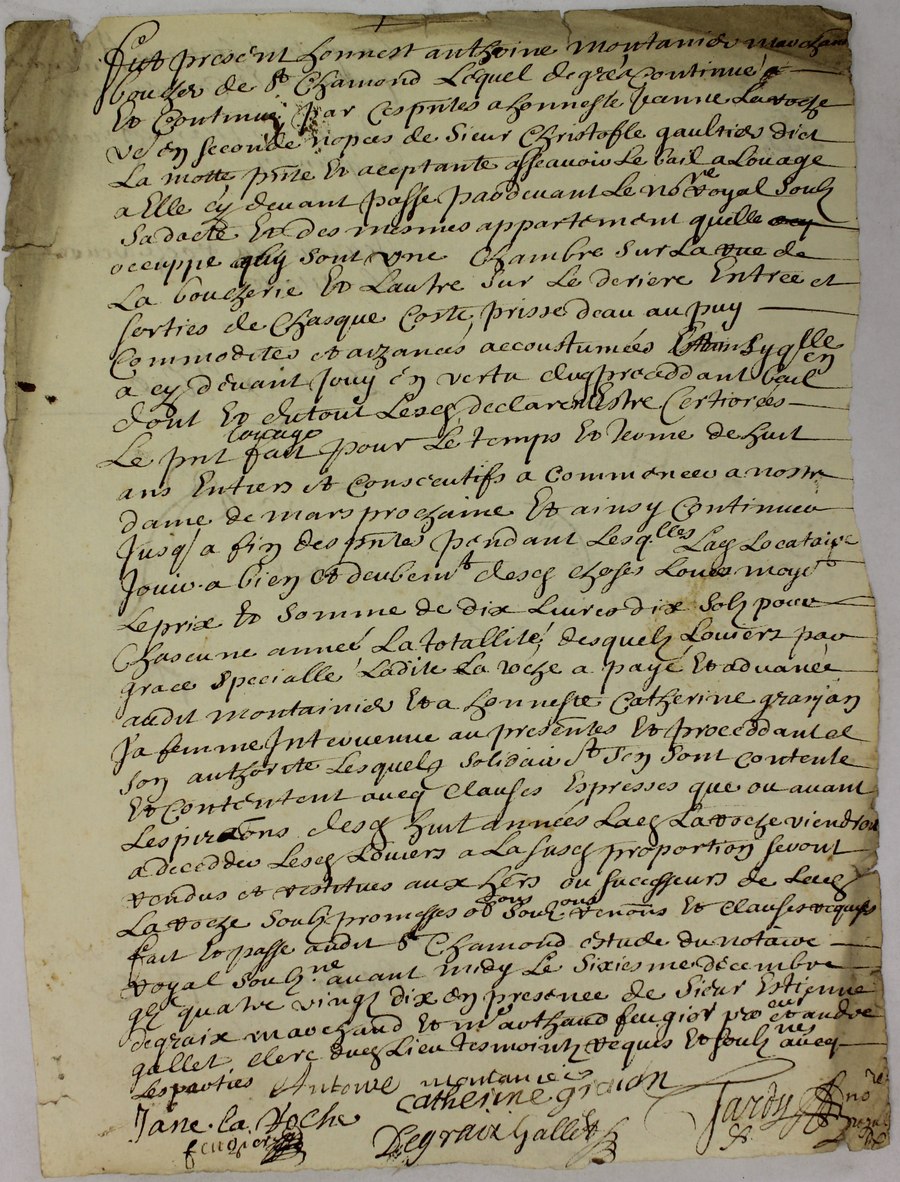 Fut present honnest anthoine montanier marchand
boucher de St Chamond Lequel de gré a Continué
Et Continue par Ces pntes a honneste Janne Laroche
ve en seconde nopces de Sieur Christofle gaultier dict
La motte pnte Et aceptante assavoir Le bail a Louage
a Elle cy devant passé pardevant Le nore Royal Soubz
Sa dacte Et des mesmes appartement quelle
occuppe quy sont une Chambre sur La rue de
La boucherie Et Lautre sur Le deriere Entrée et
sorties de Chasque Costé prisse deau au puy
Commodités et aizances accoustumées Ainsy qlle
a cy devant Jouy en vertu dud proceddant bail
dont Et du tout Lesd declarent Estre Certiorés
Le pnt Louage fait pour Le temps Et terme de huit
ans Entiers et Consecutifs a Commencer a nostre
dame de mars prochaine Et ainsy Continuer
Jusqa fin des pntes pendant Lesqlles Lad Locataire
Jouira bien et deubemt desd choses Louées moyt
Le prix Et somme de dix Livres dix solz pour
Chascune année La totallité desquelz Louiers par
grace specialle Ladite La roche a payé Et advancé
audit montainier Et a honneste Catherine granjon
sa femme Intervenue au presentes Et proceddant de
son authorité Lesquelz solidairt sen sont contente
Et Contentent avec Clauses Expresses que ou avant
Les desd huit années Lad La roche viendroit
a decedder Lesd Louiers a La susd proportion seront
rendus et restitues aux hers ou successeurs de Lad
La roche Soubz promesses ob soubz renons Et Clauses requises
fait Et passe audit St Chamond estude du notaire
royal soubzne avant midy Le sixiesme decembre
gbc quatre vingt dix en presence de Sieur Estienne
degraix marchand Et me arthaud feugior procur et andre
gallet clerc dud Lieu tesmointz requis Et soubznes avec
Les parties Antoine montanier
Catherine granjon
Jane la roche
feugior Degraix Gallet Jardy nore royal